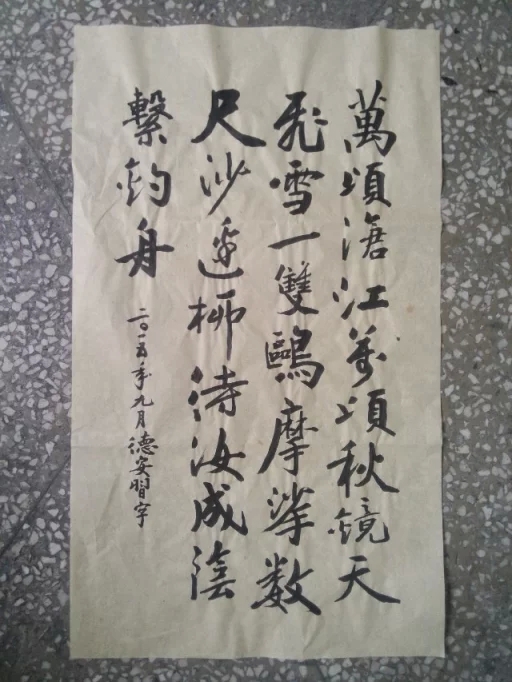 萬頃滄江萬頃秋鏡天
飛雪一雙鷗摩挲数
尺沙邊柳待汝成陰
繫釣舟
二〇一五年九月德安習字